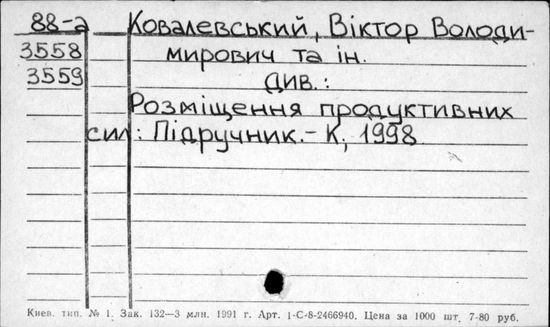 88-а Ковалевський, Віктор Володи-
3558 мирович та ін.
3559 див.:
Розміщення продуктивних
сил: Підручник.- К, 1998
Киев. тип. № 1. Зак. 132—3 млн. 1991 г. Арт. 1-С-8-2466940. Цена за 1000 шт. 7-80 руб.